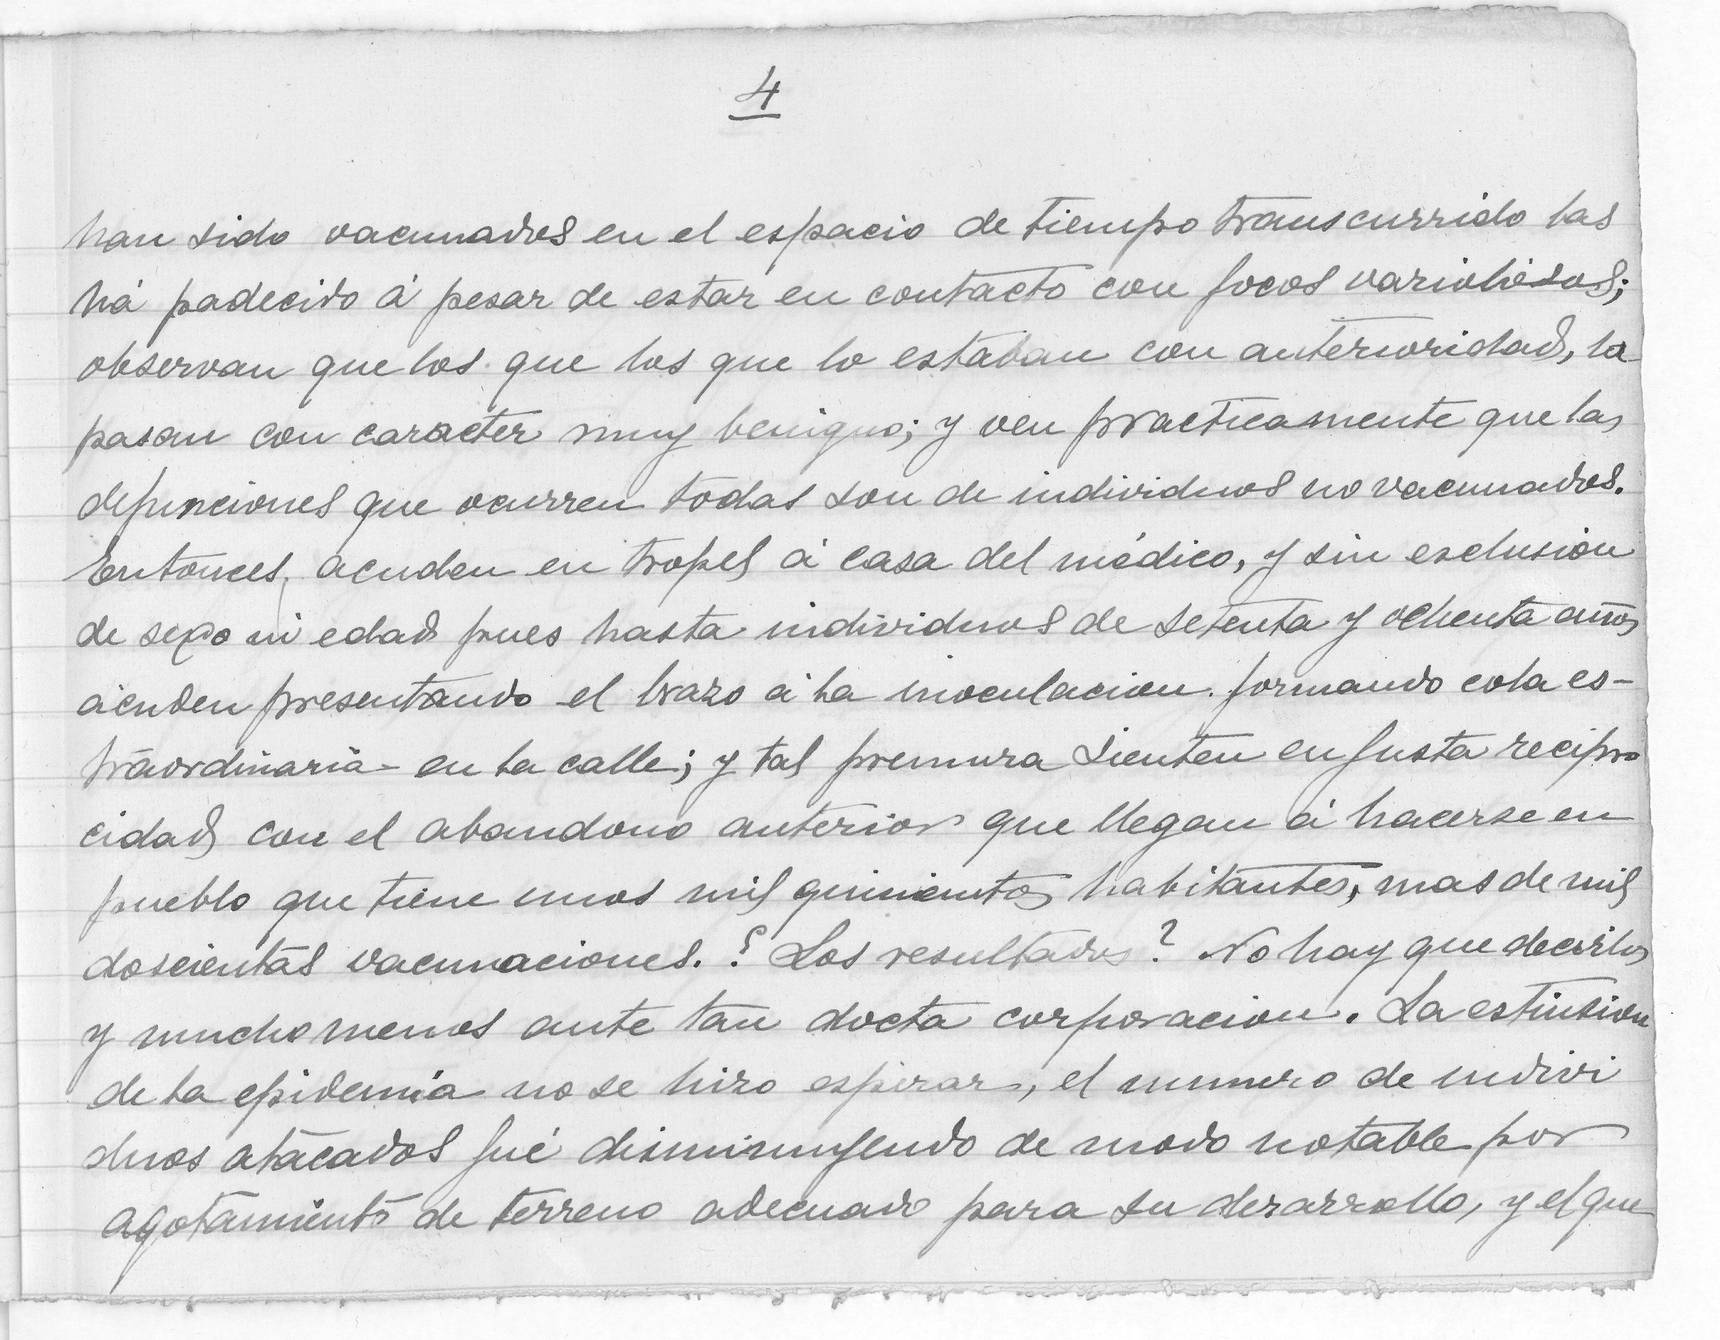 4
han sido vacunados en el espacio de tiempo transcurrido las
há padecido á pesar de estar en contacto con focos variolósos;
observan que los que los que lo estaban con anterioridad, la
pasan con caracter muy benigno; y ven practicamente que las
defunciones que ocurren todas son de individuos no vacunados.
Entonces, acuden en tropel á casa del médico, y sin esclusion
de sexo ni edad pues hasta individuos de setenta y ochenta años
acuden presentando el brazo á la inoculacion formando cola es-
traordinaria en la calle; y tal premura sienten en justa recipro
cidad con el abandono anterior que llegan á hacerse en
pueblo que tiene unos mil quinientos habitantes, mas de mil
doscientas vacunaciones. ? Los resultados? No hay que decirlos
y mucho menos ante tan docta corporacion. La estinsion
de la epidemia no se hizo esperar, el numero de indivi
duos atacados fué disminuyendo de modo notable por
agotamiento de terreno adecuado para su desarrollo, y el que